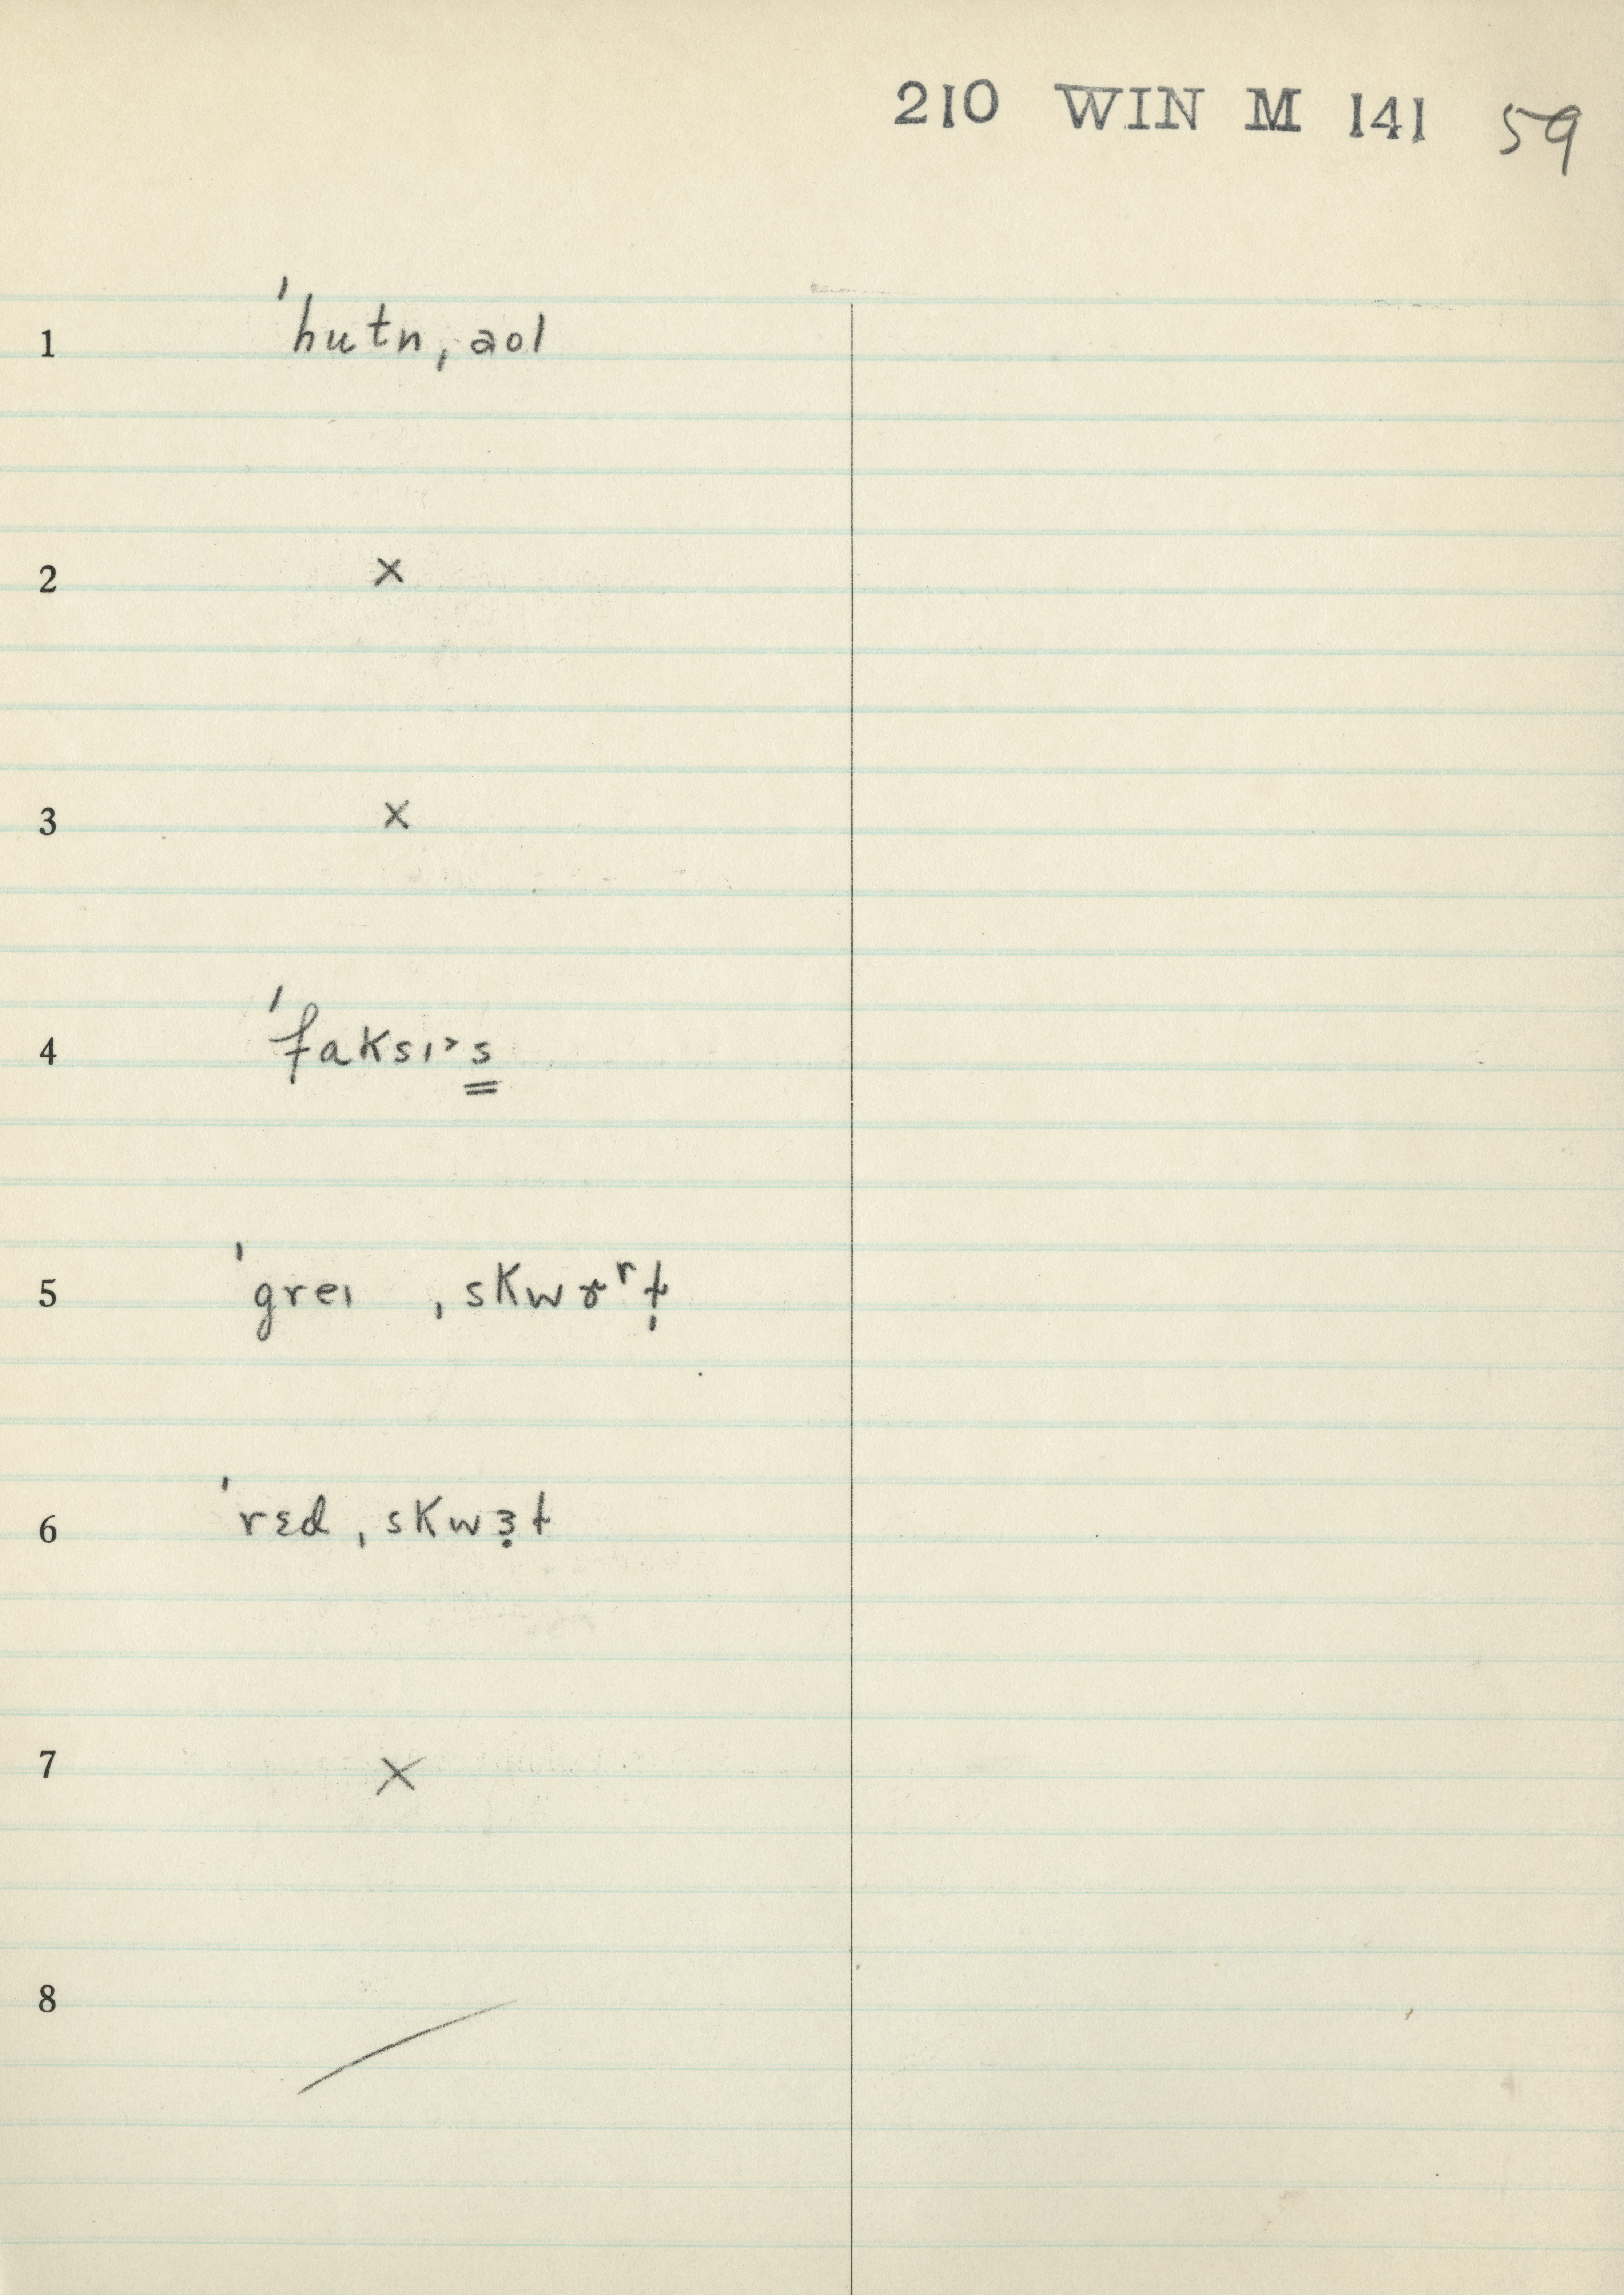 210 WIN M 141 59
1 ˈhutnˌaol
2 ×
3 ×
4 ˈfaksɪ˃s̳
5 ˈgreɪ ˌskwɚʳt̩
6 ˈrɛdˌskwɜ̣t
7 ×
8 /